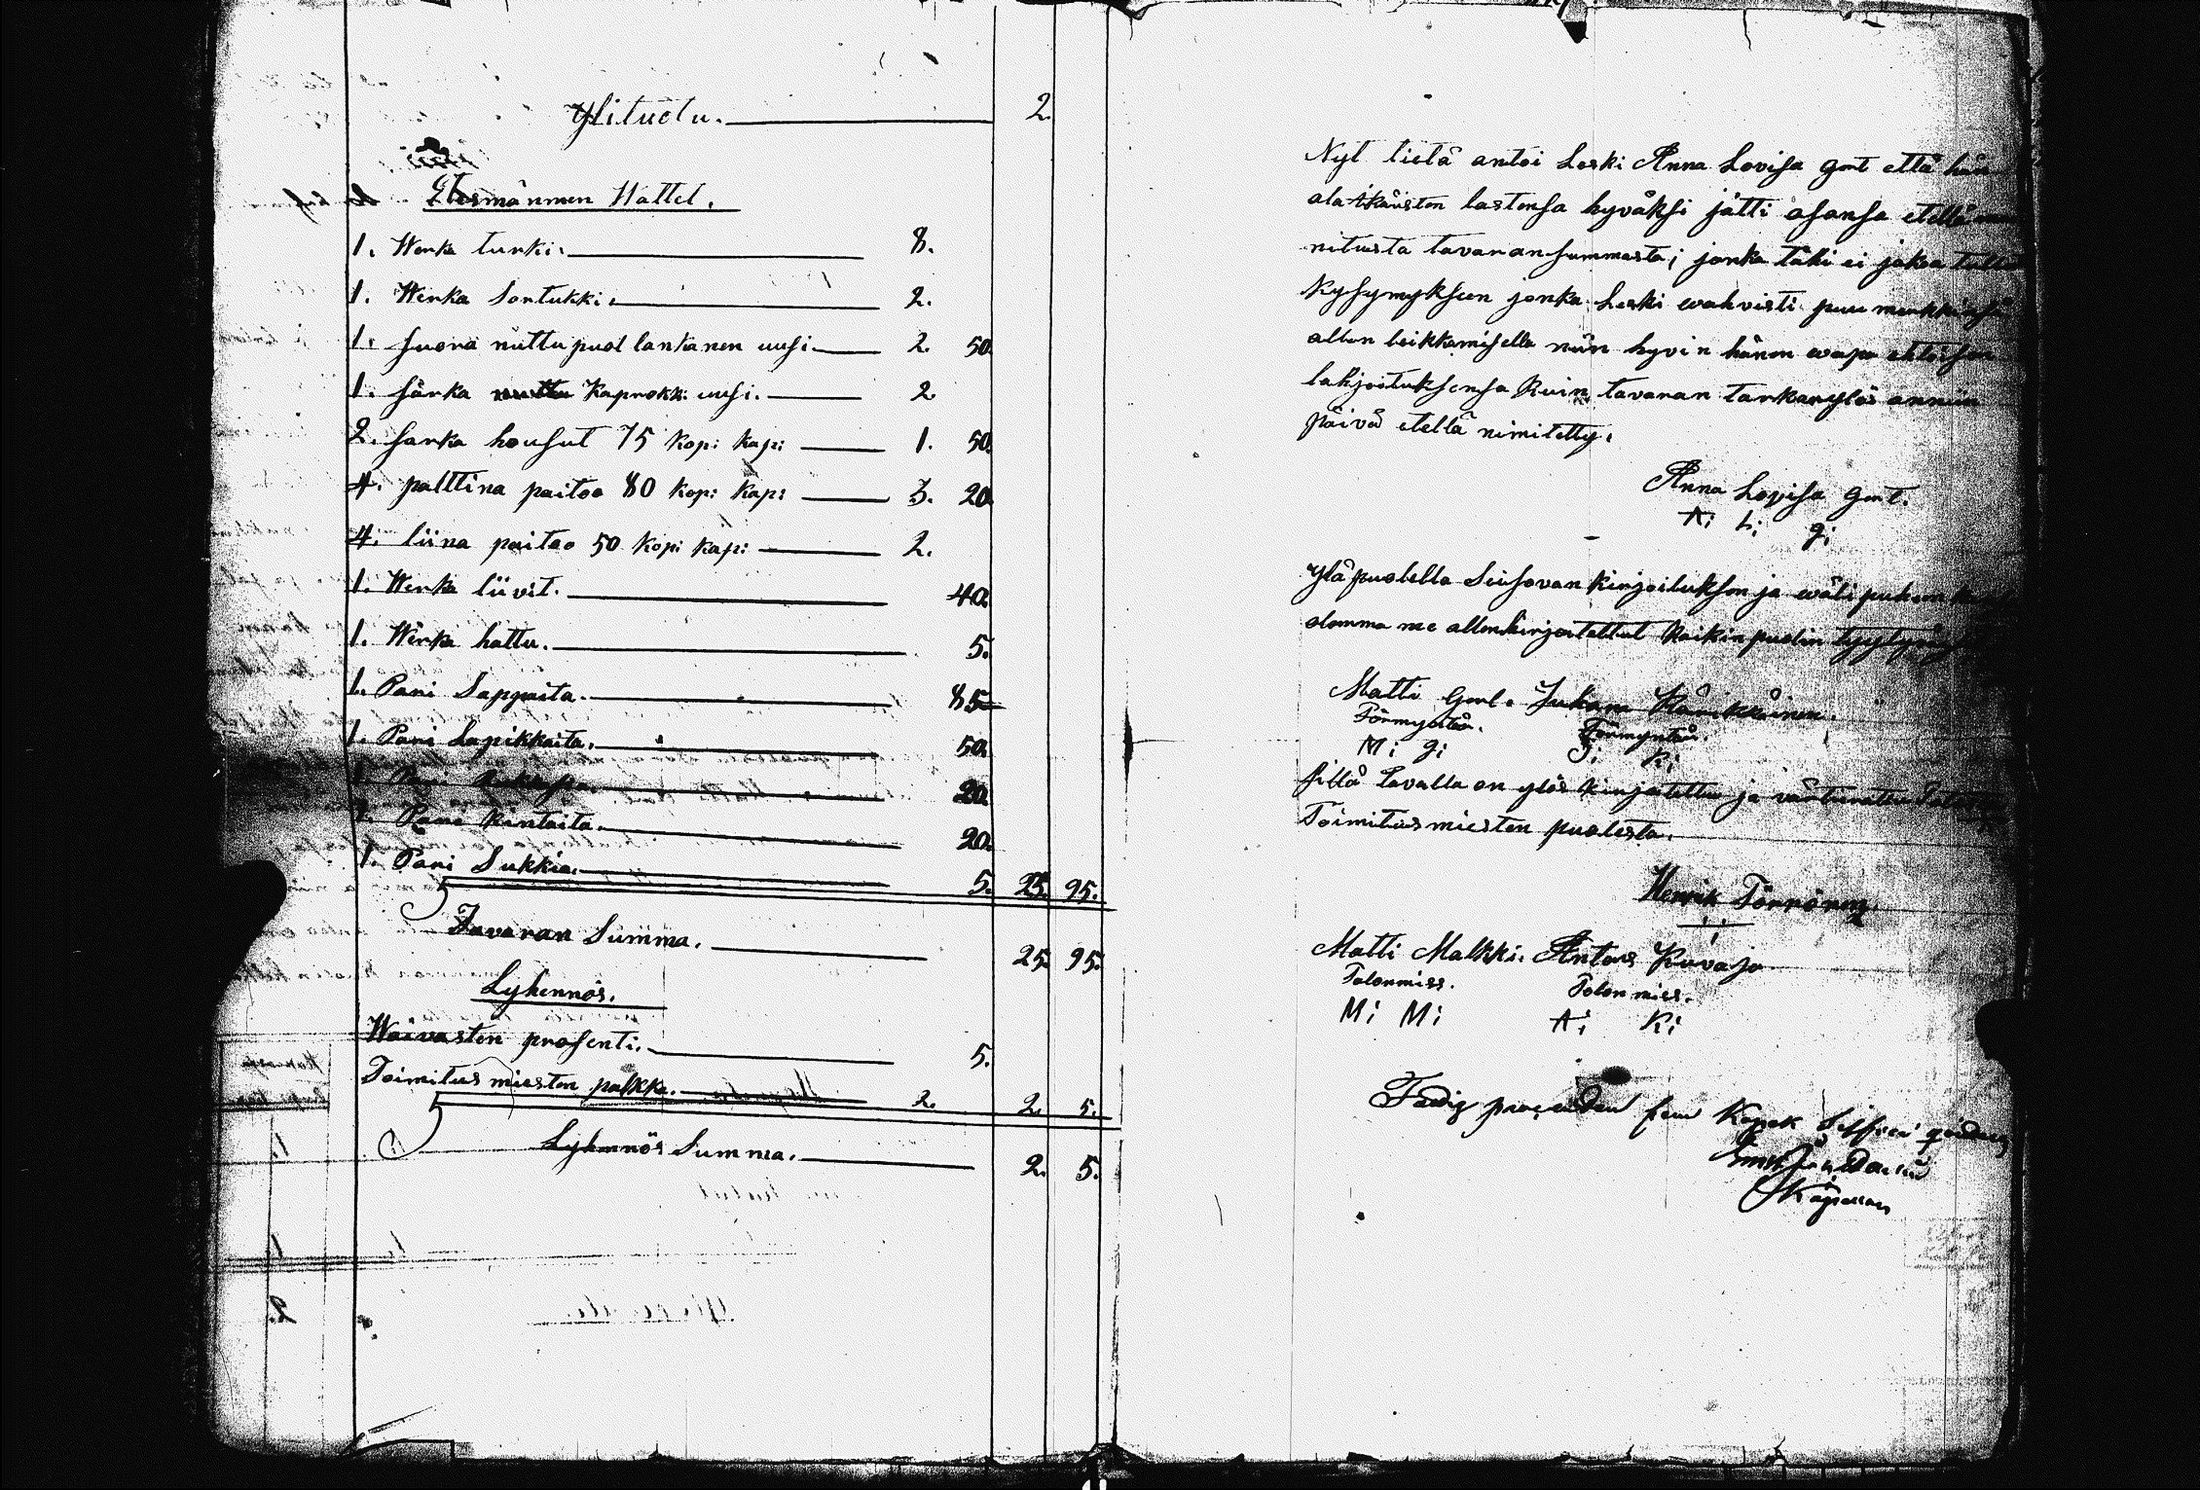 Ylituotu. 2.
Etesmännen Wattet.
1. Werka turki. 8.
1. Werka Sortukki. 2.
1. Suora nuttu puol lankanen uusi 2. 50.
1. Särka nuttu Kaprokki uusi. 2
2. Sarka housut 75 Kop: Kap: 1. 50.
4. palttina paitoa 80 Kop: Kap: 3. 20.
4. liina paitoa 50 Kop: Kap: 2.
1. Werka liivit. 40.
1. Werka hattu. 5.
1. Pari Sappaita. 85
1. Pari Lapikkaita. 50.
1. Pari 20.
1. Pari Kintaita. 20.
1. Pari Sukkia. 5. 25. 95.
Tavaran Summa. 25. 95.
Lyhennös.
Waivasten prosenti. 5.
Toimitus miesten palkka. 2. 2. 5.
Lyhennös Summa. 2. 5.
Nyt tielä antoi Leski Anna Lovisa Gort että hän
ala-ikäisten lastensa hyväksi jätti osansa etellä
nitusta tavaran summasta; jonka täki ei jakoa tulle
Kysymykseen jonka Leski wahvisti puu merkkinsä
allen leikkamisella niin hyvin hänen wapa ehtoisen
lahjoituksensa Kuin tavaran tarkan ylös annin
päivä etellä nimitetty.
Anna Lovisa Gort.
A; L; g;
Ylä puolella Seisovan Kirjoituksen ja wäli puhen
olemma me allenkirjoitettut Kaikin puolin
Matti Gort. Juhana Häirikkäinen.
Förmyntär. Förmyntär.
M; g; J; K;
Sillä tavalla on ylös Kirjoitettu ja
Toimitusmiesten puolesta.
Henrik Törrönen
Matti Malkki. Antas Kuvaja
Talonmies. Talonmies.
M; M; A; K;
Fattig procenten fem Kopek Silfver